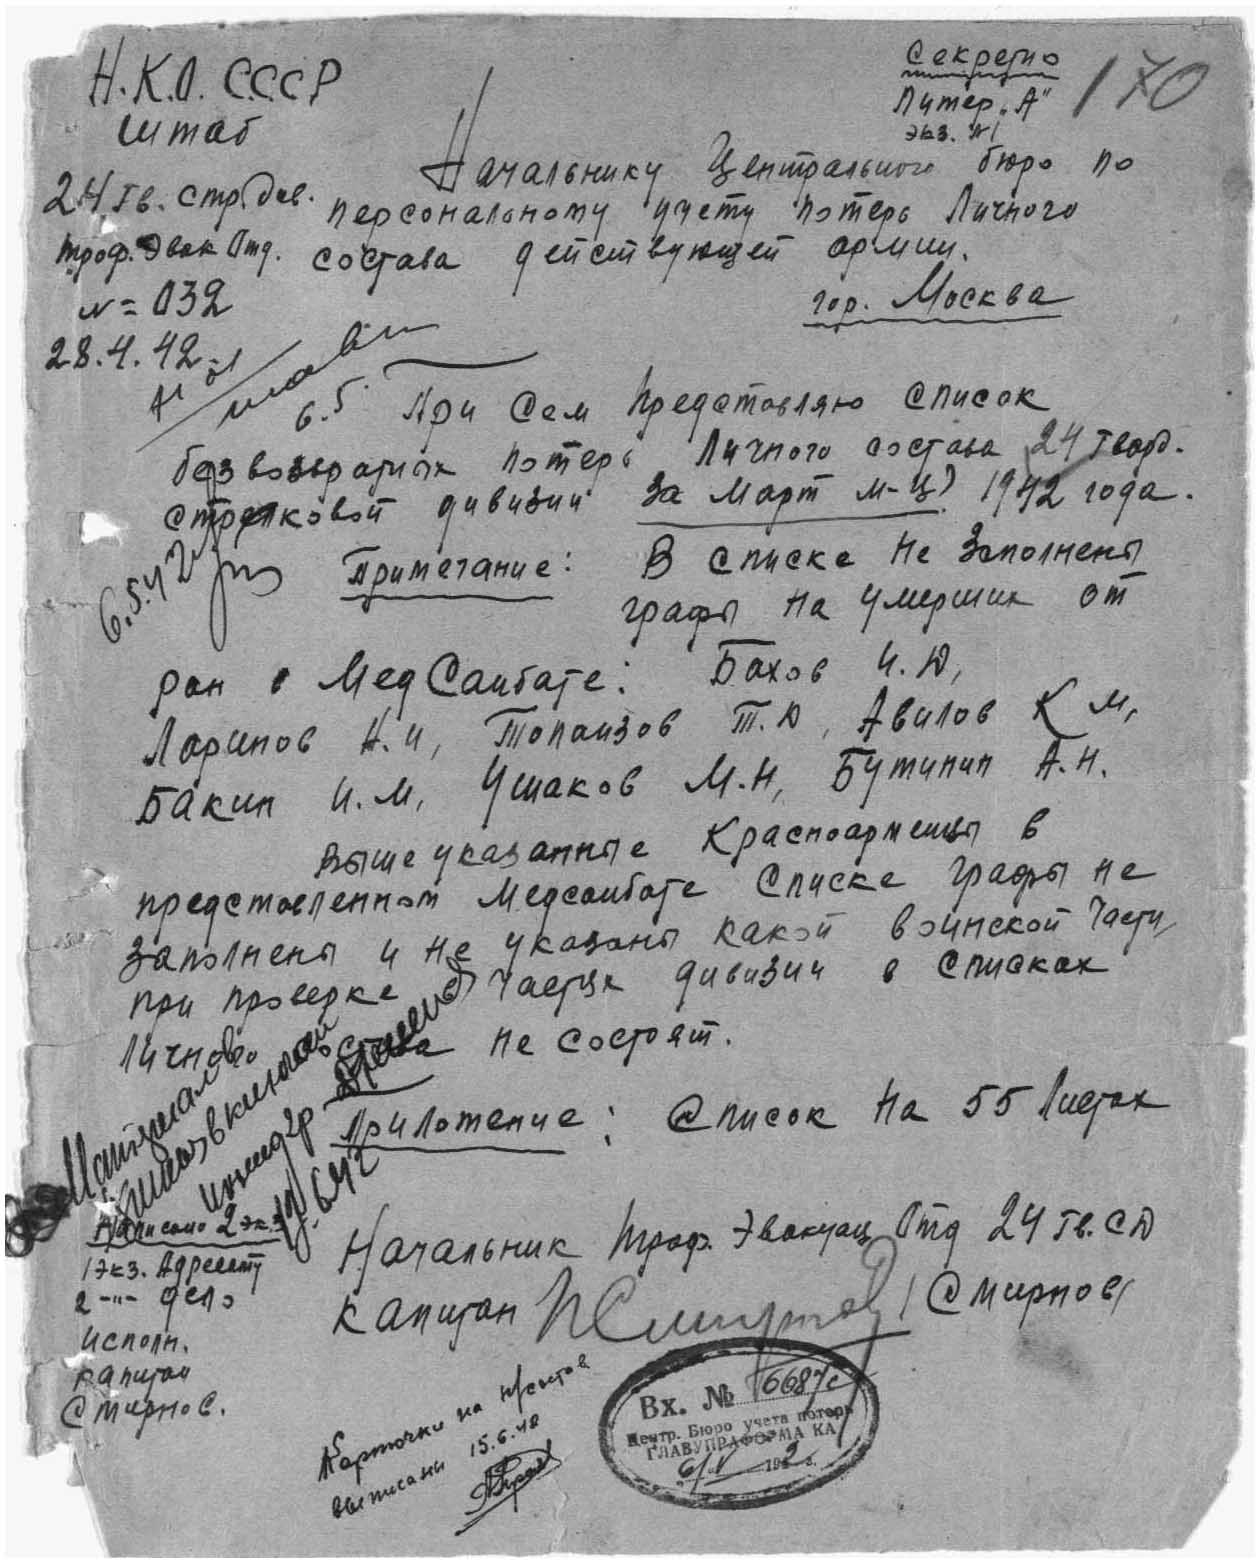 Н.К.О. СССР
Штаб
24 гв. стр. див.
троф. Эвак Отд.
N= 032
28.4.42
Секретно
Литер „А"
экз. N1
170
Начальнику Центрального бюро по
персональному учету потерь Личного
состава действующей армии.
гор. Москва
6.5.
При сем представляю список
безвозвратных потерь Личного состава 24 гвард.
стрелковой дивизии за Март м-ц 1942 года.
6.5.42
Примечание: В списке не заполнены
графы на умерших от
ран в МедСанбате: Бахов И.Д,
Ларинов Н.И, Топаизов Т.Д, Авилов К М,
Бакин И.М, Ушаков М.Н, Бутинин А.Н.
Выше указанные Красноармейцы в
представленном Медсанбате Списке графы не
заполнены и не указаны какой воинской части,
при проверке в частях дивизии в списках
Личного состава не состоят.
Приложение: Список на 55 Листах
Начальник Троф. Эвакуац Отд 24 гв. СД
Капитан /Смирнов/
Написано 2 экз
1 экз. Адресату
2 -"- дело
исполн.
капитан
Смирнов.
Карточки на н/состав
выписаны 15.6.42
Вх. № 6687с
Центр. Бюро учета потерь
ГЛАВУПРАФОРМА КА
6/V 1942 г.